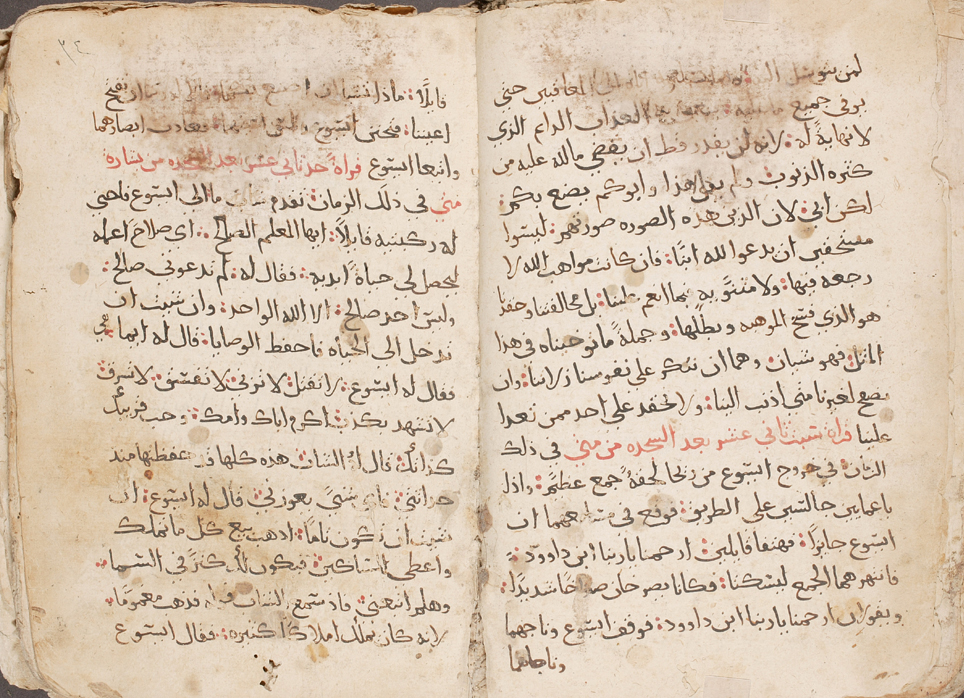 لمن يتوسل المعاقبين حتى
يوفي جميع العذاب الدايم الذي
لا نهاية له: لانه لن يقدر قط ان يقضي ما لله عليه من
كثره الذنوب ولم يقل هذا وابوكم يصنع بكم:
لكن ابي: لان الذي هذه الصوره صورتهم: ليسوا
مستحقين ان يدعوا لله ابنًا: فان كانت مواهب الله لا
رجعه فيها: ولا بما انعم علينا: بل مخالفتنا وحقدنا
هو الذي الموهبه وبطلها: وجملةً ما في هذا
المثل: فهو شيان: وهما ان ننكر على نفوسنا زلاتنا: وان
لغيرنا متى اذنب الينا: ولا نحقد على احد ممن تعدا
علينا قراة سبت ثاني عشر بعد السجده من متى في ذلك
الزمان: في خروج ايسوع من ريحا لحقهُ جمع عظيم: واذا
باعمايين جالسين على الطريق: فوقع في مسامعهما ان
ايسوع جايزًا: فهتفا قايلين: ارحمنا يا ربنا ابن داوود:
فانتهرهما الجمع ليسكتا: فكانا يصرخان صراخًا شديدًا:
ويقولان ارحمنا يا ربنا ابن داوود: فوقف ايسوع وناجهما
وناجاهما
قايلًا: ماذا تشا ان تفتح
اعيننا: فتحنن ايسوع فعادت ابصارهما
واتبعا ايسوع قراة حد ثاني عشر بعد السجده من بشارة
متى في ذلك الزمان: تقدم شاب ما الى ايسوع فاحبى
له ركبتيه قايلًا: ايها المعلم الصالح: اي صلاح اعمله
ليحصل لي حياةً ابديه: فقال له: لم تدعوني صالح:
وليس احد صالح: الا الله الواحد: وان شيت ان
تدخل الى الحياه فاحفظ الوصايا: قال له ايما هي
فقال له ايسوع: لا تقتل: لا تزني لا تفسق: لا تسرق:
لا تشهد بكذب: اكرم اباك وامك: وحب قريبك
كذاتك: قال له الشاب هذه كلها قد حفظتها منذ
حداثتي: فاي شيً يعوزني: قال له ايسوع: ان
شيت ان تكون تامًا: اذهب بيع كل ما تملك
واعطي المساكين: فيكون لك كنزً في السما:
وهلم اتبعني: فاذ سمع الشاب قوله ذهب مغمومًا:
لانه كان يملك املاكًا كثيره: فقال ايسوع